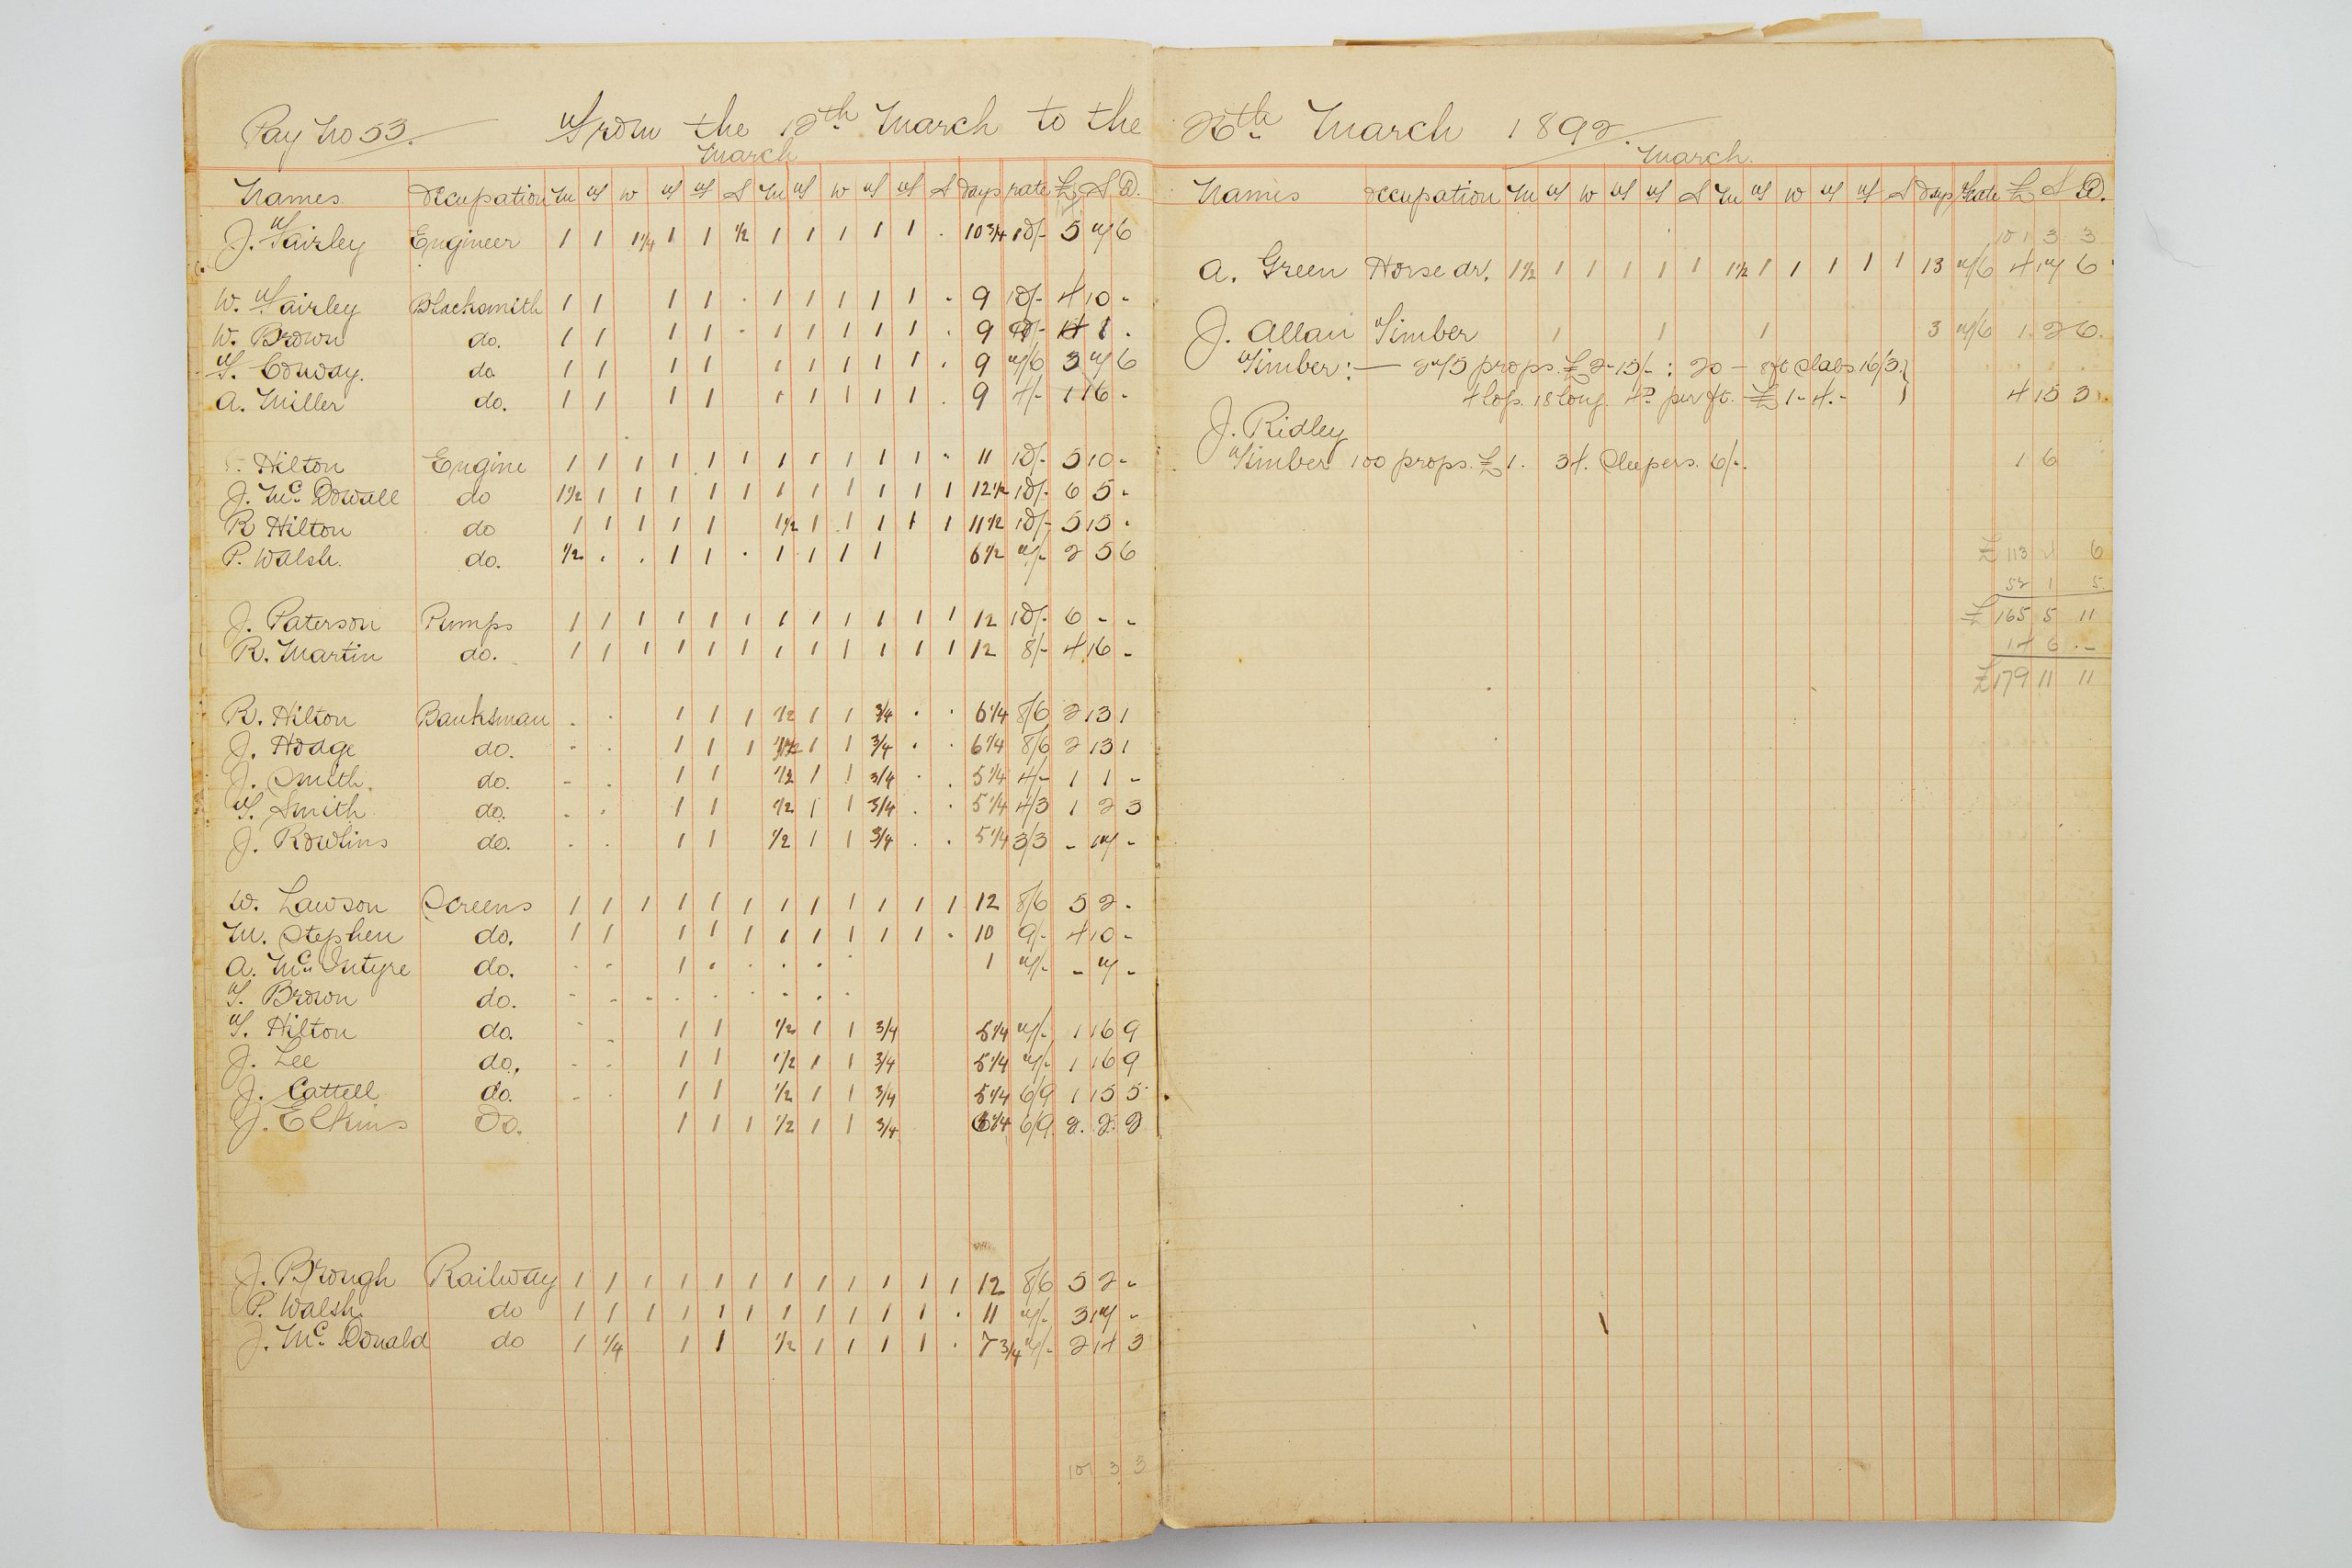 Pay No 53. From the 12th March to the
March
Names Occupation M T W T F S M T W T F S Days rate £ S D.
J. Fairley Engineer 1 1 1¼ 1 1 ½ 1 1 1 1 1 . 10¾ 10/- 5 7 6
W. Fairley Blacksmith 1 1 1 1 . 1 1 1 1 1 . 9 10/- 4 10 -
W. Brown do. 1 1 1 1 - 1 1 1 1 1 . 9 4 1 .
T. Conway. do 1 1 1 1 1 1 1 1 1 . 9 7/6 3 7 6
A. Miller do. 1 1 1 1 1 1 1 1 1 . 9 4/- 1 16 -
Hilton Engine 1 1 1 1 1 1 1 1 1 1 1 . 11 10/- 5 10 -
J. Mc Dowall do 1½ 1 1 1 1 1 1 1 1 1 1 1 12½ 10/- 6 5 -
R Hilton do 1 1 1 1 1 1½ 1 1 1 1 1 11½ 10/- 5 15 .
P. Walsh. do. ½ . . 1 1 . 1 1 1 1 6½ 7/- 2 5 6
J. Paterson Pumps 1 1 1 1 1 1 1 1 1 1 1 1 12 10/- 6 - -
R. Martin do. 1 1 1 1 1 1 1 1 1 1 1 1 12 8/- 4 16 -
R. Hilton Banksman . . 1 1 1 ½ 1 1 ¾ . . 6¼ 8/6 2 13 1
J. Hodge do. - . 1 1 1 ½ 1 1 ¾ . . 6¼ 8/6 2 13 1
J. Smith. do. - . 1 1 ½ 1 1 ¾ . . 5¼ 4/- 1 1 -
T. Smith do. . . 1 1 ½ 1 1 ¾ . . 5¼ 4/3 1 2 3
J. Rowlins do. . . 1 1 ½ 1 1 ¾ . . 5¼ 3/3 - 17 -
W. Lawson Screens 1 1 1 1 1 1 1 1 1 1 1 1 12 8/6 5 2 .
M. Stephen do. 1 1 1 1 1 1 1 1 1 1 . 10 9/- 4 10 -
A. Mc Intyre do. . . 1 . . . . . 1 7/- - 7 -
T. Brown do. - - - . . . . . .
T. Hilton do. . . 1 1 ½ 1 1 ¾ 5¼ 7/- 1 16 9
J. Lee do. . . 1 1 ½ 1 1 ¾ 5¼ 7/- 1 16 9
J. Cattell do. - . 1 1 ½ 1 1 ¾ 5¼ 6/9 1 15 5
J. Elkins Do. 1 1 1 ½ 1 1 ¾ 6¼ 6/9 2. 2. 2
J. Brough Railway 1 1 1 1 1 1 1 1 1 1 1 1 12 8/6 5 2 -
P. Walsh. do 1 1 1 1 1 1 1 1 1 1 1 . 11 7/- 3 17 -
J. Mc Donald do 1 ¼ 1 1 ½ 1 1 1 1 . 7¾ 7/- 2 14 3
101 3 3
26th March 1892.
March.
Names Occupation M T W T F S M T W T F S Days Rate £ S D.
101 3 3
A. Green Horse dr. 1½ 1 1 1 1 1 1½ 1 1 1 1 1 13 7/6 4 17 6
J. Allan Timber 1 1 1 3 7/6 1. 2 6.
Timber:— 275 props. £2-15/-: 20 - 8ft Slabs 16/3.
4 logs. 18 long. 4D per ft. £1-4.- 4 15 3
J. Ridley
Timber 100 props. £1. 34. Sleepers. 6/-. 1 6
£ 113 4 6
52 1 5
£ 165 5 11
14 6 -
£179 11 11